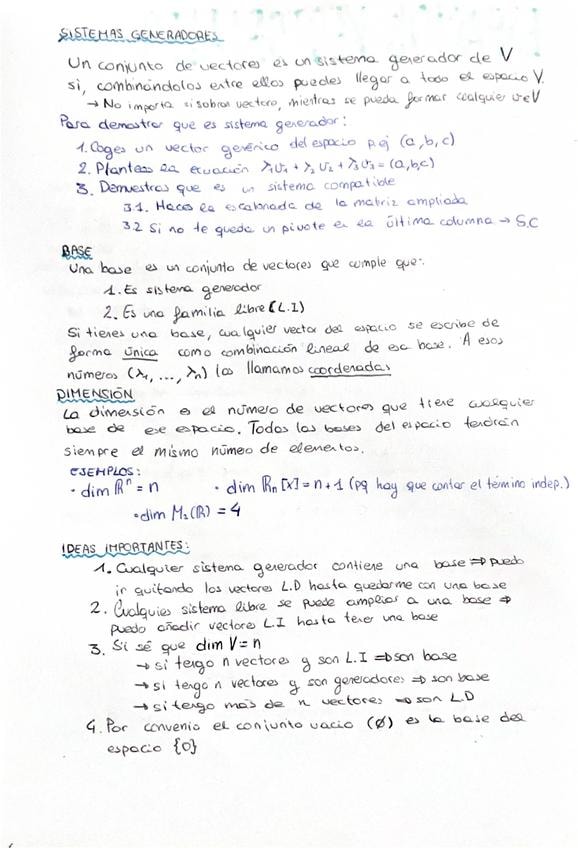 SISTEMAS GENERADORES
Un conjunto de vectores es un sistema generador de V
si, combinándolos entre ellos puedes llegar a todo el espacio V.
→ No importa si sobran vectores, mientras se pueda formar cualquier v∈V
Para demostrar que es sistema generador:
1. Coges un vector genérico del espacio p.ej (a,b,c)
2. Planteas la ecuación λ₁v₁ + λ₂v₂ + λ₃v₃ = (a,b,c)
3. Demuestras que es un sistema compatible
3.1. Haces la escalonada de la matriz ampliada
3.2 Si no te queda un pivote en la última columna → S.C
BASE
Una base es un conjunto de vectores que cumple que:
1. Es sistema generador
2. Es una familia libre (L.I)
Si tienes una base, cualquier vector del espacio se escribe de
forma única como combinación lineal de esa base. A esos
números (λ₁, ..., λₙ) los llamamos coordenadas
DIMENSIÓN
La dimensión es el número de vectores que tiene cualquier
base de ese espacio. Todas las bases del espacio tendrán
siempre el mismo número de elementos.
EJEMPLOS:
· dim ℝⁿ = n · dim ℝₙ[x] = n+1 (pq hay que contar el término indep.)
· dim M₂(ℝ) = 4
IDEAS IMPORTANTES:
1. Cualquier sistema generador contiene una base ⇒ puedo
ir quitando los vectores L.D hasta quedarme con una base
2. Cualquier sistema libre se puede ampliar a una base ⇒
puedo añadir vectores L.I hasta tener una base
3. Si sé que dim V = n
→ si tengo n vectores y son L.I ⇒ son base
→ si tengo n vectores y son generadores ⇒ son base
→ si tengo más de n vectores ⇒ son L.D
4. Por convenio el conjunto vacío (∅) es la base del
espacio {0}